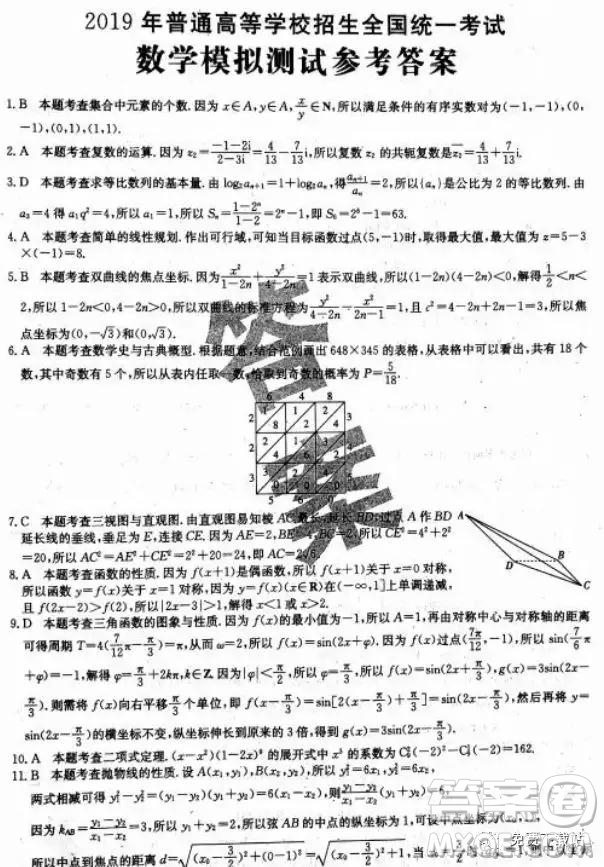 2019 年普通高等学校招生全国统一考试
数学模拟测试参考答案
1. B 本题考查集合中元素的个数. 因为 x∈A, y∈A, x/y∈N, 所以满足条件的有序实数对为(-1,-1),(0,
-1),(0,1),(1,1).
2. A 本题考查复数的运算. 因为 z₂=(-1-2i)/(2-3i)=4/13-7/13 i, 所以复数 z₂ 的共轭复数是 z̄₂=4/13+7/13 i.
3. D 本题考查求等比数列的基本量. 由 log₂aₙ₊₁=1+log₂aₙ, 得 aₙ₊₁/aₙ=2, 所以{aₙ}是公比为 2 的等比数列. 由
a₃=4 得 a₁q²=4, 所以 a₁=1, 所以 Sₙ=(1-2ⁿ)/(1-2)=2ⁿ-1, 即 S₆=2⁶-1=63.
4. A 本题考查简单的线性规划. 作出可行域, 可知当目标函数过点(5,-1)时, 取得最大值, 最大值为 z=5-3
×(-1)=8.
5. B 本题考查双曲线的焦点坐标. 因为 x²/(1-2n)+y²/(4-2n)=1 表示双曲线, 所以(1-2n)(4-2n)<0, 解得 1/2<n<
2, 所以 1-2n<0, 4-2n>0, 所以双曲线的标准方程为 y²/(4-2n)-x²/(2n-1)=1, 且 c²=4-2n+2n-1=3, 所以焦
点坐标为(0,-√3)和(0,√3).
6. A 本题考查数学史与古典概型. 根据题意, 结合范例画出 648×345 的表格, 从表格中可以看出, 共有 18 个
数, 其中奇数有 5 个, 所以从表内任取一数, 恰取到奇数的概率为 P=5/18.
6 4 8
2 3
2 4
3 5
5 6 0
7. C 本题考查三视图与直观图. 由直观图易知棱 AC 最长, 延长 BD, 过点 A 作 BD
延长线的垂线, 垂足为 E, 连接 CE. 因为 AE=2, BE=4, BC=2, 所以 CE²=4²+2²
=20, 所以 AC²=AE²+CE²=2²+20=24, 即 AC=2√6.
A
D
B
C
8. A 本题考查函数的性质. 因为 f(x+1)是偶函数, 所以 f(x+1)关于 x=0 对称,
所以函数 y=f(x)关于 x=1 对称. 因为 f(x)(x∈R)在(-∞,1]上单调递减,
且 f(2x-2)>f(2x), 所以|2x-2-1|>|2x-1|, 解得 x<1.
9. D 本题考查三角函数的图象与性质. 因为 f(x)的最小值为-1, 所以 A=1, 再由对称中心与对称轴的距离
可得周期 T=4(7/12 π-π/3)=π, 从而 ω=2, 所以 f(x)=sin(2x+φ). 因为 f(x)过点(7π/12,-1), 所以 sin(7/6 π
+φ)=-1, 解得 φ=π/3+2kπ, k∈Z. 因为|φ|<π/2, 所以 φ=π/3, 所以 f(x)=sin(2x+π/3), g(x)=3sin(2x-
π/3). 则需将 f(x)向右平移 π/3 个单位, 即 f(x-π/3)=sin[2(x-π/3)+π/3]=sin(2x-π/3), 然后再将 y=
sin(2x-π/3)的横坐标不变, 纵坐标伸长到原来的 3 倍, 得到 g(x)=3sin(2x-π/3).
10. A 本题考查二项式定理. (x-x²)(1-2x)⁹ 的展开式中 x³ 的系数为 C₉²(-2)²-C₉¹(-2)=162.
11. B 本题考查抛物线的性质. 设 A(x₁,y₁), B(x₂,y₂), 所以 y₁²=6x₁, y₂²=6x₂,
两式相减可得 y₁²-y₂²=6x₁-6x₂, 即(y₁-y₂)(y₁+y₂)=6(x₁-x₂), 则 (y₁-y₂)/(x₁-x₂)
因为 k_AB=(y₁-y₂)/(x₁-x₂)=3, 所以 y₁+y₂=2, 所以弦 AB 的中点的纵坐标为 1, 可设中点坐标
所以中点到焦点的距离 d=√((x₀-3/2)²+1²)=√((x₀-3/2)²+1, 当
答案
答案圈
免费下载作